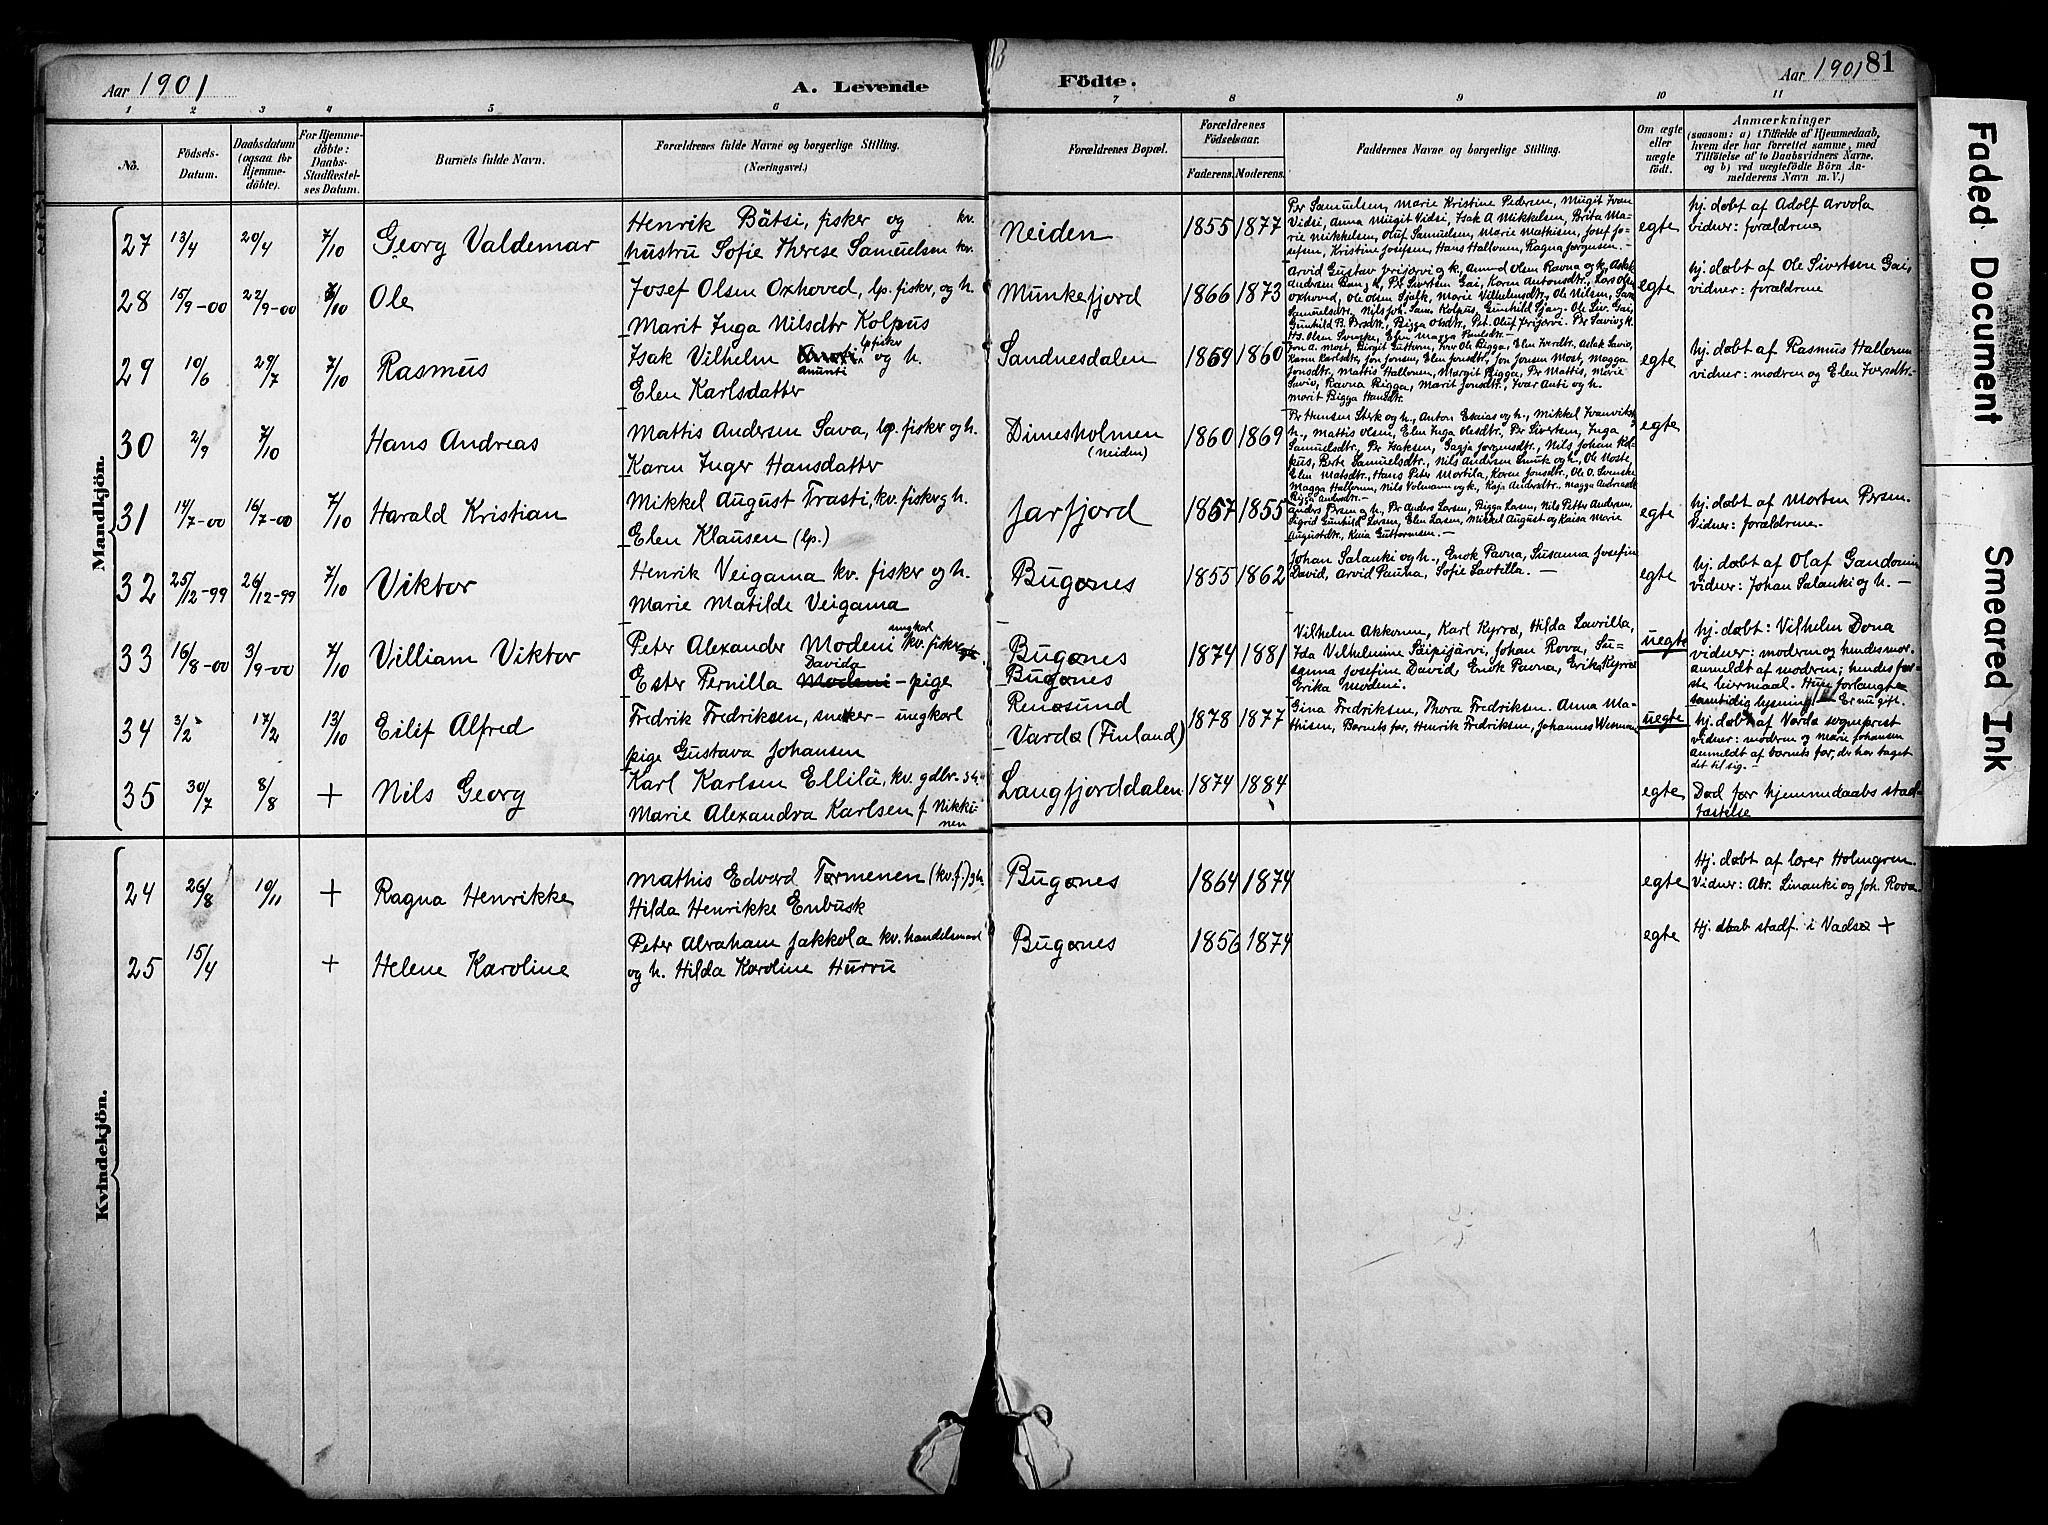 Aar 1901
A. Levende
Födte.
Aar 1901
81
1 2 3 4 5 6 7 8 9 10 11
No.
Födsels-
Datum.
Daabsdatum
(ogsaa for
Hjemme-
döbte).
For Hjemme-
döbte:
Daabs-
Stadfæstel-
ses Datum.
Barnets fulde Navn.
Forældrenes fulde Navne og borgerlige Stilling.
(Næringsvei.)
Forældrenes Bopæl.
Forældrenes
Födselsaar.
Faderens. Moderens.
Faddernes Navne og borgerlige Stilling.
Om ægte
eller
uægte
födt.
Anmærkninger
(saasom: a) i Tilfælde af Hjemmedaab,
hvem der har forrettet samme, med
Tilföielse af to Daabsvidners Navne,
og b) ved uægtefödte Börn An-
melderens Navn m. V.)
Mandkjön.
27 13/4 20/4 7/10 Georg Valdemar
Henrik Bätsi, fisker og kv.
hustru Sofie Therese Samuelsen kv.
Neiden 1855 1877
Per Samuelsen, Marie Kristine Pedersen, Margit Ivan
Vidsi, Anna Margit Vidsi, Isak A Mikkelsen, Brita Ma-
rie Mikkelsen, Oluf Samuelsen, Marie Mathisen, Josef Jo-
sefsen, Kristine Josefsen, Hans Hallonen, Ragna Jørgensen. -
egte
hj. døbt af Adolf Arvola
vidner: forældrene
28 15/9-00 22/9-00 7/10 Ole
Josef Olsen Oxhoved, lp. fisker, og h.
Marit Inga Nilsdtr Kolpus
Munkefjord 1866 1873
egte
hj. døbt af Ole Sivertsen Gai,
vidner: forældrene
29 10/6 29/7 7/10 Rasmus
Isak Vilhelm Anunti lp fisker og h.
Elen Karlsdatter
Sandnesdalen 1859 1860
egte
hj. døbt af Rasmus Hallonen
vidner: modren og Elen Iversdtr.
30 2/9 7/10 Hans Andreas
Mattis Andersen Sava, lp. fisker og h.
Karen Inger Hansdatter
Dimesholmen
(Neiden)
1860 1869
egte
31 14/7-00 16/7-00 7/10 Harald Kristian
Mikkel August Trasti, kv. fisker og h.
Elen Klausen (lp.)
Jarfjord 1857 1855
Anders Persen og h., Per Anders Larsen, Bigga Larsen, Nils Petter Andersen,
Sigrid Gunhild Larsen, Elen Larsen, Mikkel August og Kaisa Marie
Augustdtr., Kaia Guttormsen. -
egte
hj. døbt af Morten Persen.
Vidner: forældrene.
32 25/12-99 26/12-99 7/10 Viktor
Henrik Veigama kv. fisker og h.
Marie Matilde Veigama
Bugønes 1855 1862
Johan Salanki og h., Enok Pavna, Susanna Josefine
David, Arvid Pauna, Sofie Lavtilla. -
egte
hj. døbt af Olaf Gandonin
vidner: Johan Salanki og h. -
33 16/8-00 3/9-00 7/10 Villiam Viktor
Peter Alexander Modeni ungkarl kv. fisker
Ester Pernilla Davida Modeni - pige
Bugønes
Bugønes
1874 1881
Vilhelm Akkonen, Karl Kyrrø, Hilda Lavrilla,
Ida Vilhelmine Säipijärvi, Johan Rova, Su-
sanna Josefine David, Enok Pavna, Erika Kyrrø
Erika Modeni.
uegte
hj. døbt: Vilhelm Dona
vidner: modren og hendes mor.
anmeldt af modren; hendes før-
ste leiermaal. Hun forlangte
samtidig lysning. Er nu gift.
34 3/2 17/2 13/10 Eilif Alfred
Fredrik Fredriksen, snekker - ungkarl
pige Gustava Johansen
Renøsund
Vardø (Finland)
1878 1877
Gina Fredriksen, Thora Fredriksen. Anna Ma-
thisen, Barnets far, Henrik Fredriksen, Johannes Wesman
uegte
hj. døbt af Vardø sogneprest
vidner: modren og Marie Johansen
anmeldt af barnets far, der har taget
det til sig. -
35 30/7 8/8 + Nils Georg
Karl Karlsen Ellilä, kv. gdbr. og h.
Marie Alexandra Karlsen f Nikku-
nen
Langfjorddalen 1874 1884
egte
Død før hjemmedaabs stad-
fæstelse
Kvindekjön.
24 26/8 10/11 + Ragna Henrikke
Mathis Edvard Tormenen (kv. f.) og h.
Hilda Henrikke Enbusk
Bugønes 1864 1874
egte
Hj. døbt af lærer Holmgren.
Vidner: Abr. Linanki og Joh. Rova.
25 15/4 + Helene Karoline
Peter Abraham Jakkola kv. handelsmand
og h. Hilda Karoline Hurru
Bugønes 1856 1874
egte
Hj. daab stadf. i Vadsø +
Faded Document
Smeared Ink